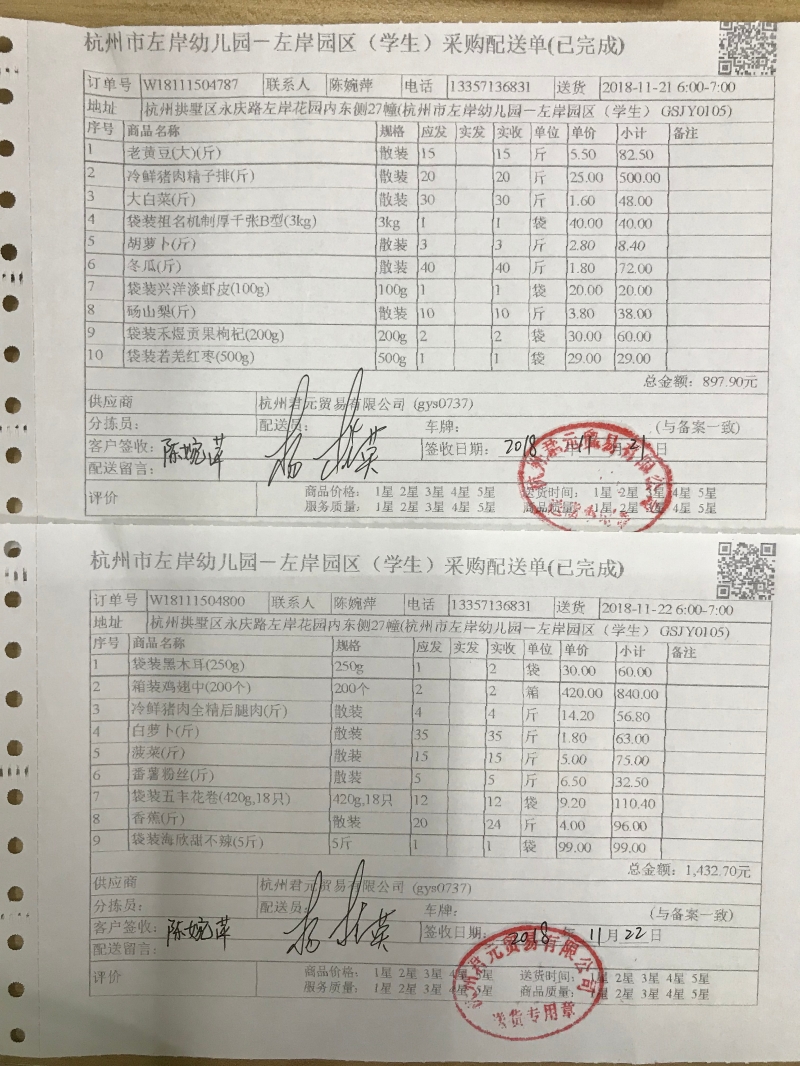 杭州市左岸幼儿园－左岸园区（学生）采购配送单(已完成)
订单号 W18111504787 联系人 陈婉萍 电话 13357136831 送货 2018-11-21 6:00-7:00
地址 杭州拱墅区永庆路左岸花园内东侧27幢(杭州市左岸幼儿园－左岸园区（学生） GSJY0105)
序号 商品名称 规格 应发 实发 实收 单位 单价 小计 备注
1 老黄豆(大)(斤) 散装 15 15 斤 5.50 82.50
2 冷鲜猪肉精子排(斤) 散装 20 20 斤 25.00 500.00
3 大白菜(斤) 散装 30 30 斤 1.60 48.00
4 袋装祖名机制厚千张B型(3kg) 3kg 1 1 袋 40.00 40.00
5 胡萝卜(斤) 散装 3 3 斤 2.80 8.40
6 冬瓜(斤) 散装 40 40 斤 1.80 72.00
7 袋装兴洋淡虾皮(100g) 100g 1 1 袋 20.00 20.00
8 砀山梨(斤) 散装 10 10 斤 3.80 38.00
9 袋装禾煜贡果枸杞(200g) 200g 2 2 袋 30.00 60.00
10 袋装若羌红枣(500g) 500g 1 1 袋 29.00 29.00
总金额：897.90元
供应商 杭州君元贸易有限公司 (gys0737)
分拣员： 配送员： 车牌： (与备案一致)
客户签收： 陈婉萍 杨 英 签收日期： 2018 年 11 月 21 日
配送留言：
评价 商品价格： 1星 2星 3星 4星 5星 送货时间： 1星 2星 3星 4星 5星
服务质量： 1星 2星 3星 4星 5星 商品质量： 1星 2星 3星 4星 5星
杭州君元贸易有限公司
送货专用章
杭州市左岸幼儿园－左岸园区（学生）采购配送单(已完成)
订单号 W18111504800 联系人 陈婉萍 电话 13357136831 送货 2018-11-22 6:00-7:00
地址 杭州拱墅区永庆路左岸花园内东侧27幢(杭州市左岸幼儿园－左岸园区（学生） GSJY0105)
序号 商品名称 规格 应发 实发 实收 单位 单价 小计 备注
1 袋装黑木耳(250g) 250g 1 2 袋 30.00 60.00
2 箱装鸡翅中(200个) 200个 2 2 箱 420.00 840.00
3 冷鲜猪肉全精后腿肉(斤) 散装 4 4 斤 14.20 56.80
4 白萝卜(斤) 散装 35 35 斤 1.80 63.00
5 菠菜(斤) 散装 15 15 斤 5.00 75.00
6 番薯粉丝(斤) 散装 5 5 斤 6.50 32.50
7 袋装五丰花卷(420g,18只) 420g,18只 12 12 袋 9.20 110.40
8 香蕉(斤) 散装 20 24 斤 4.00 96.00
9 袋装海欣甜不辣(5斤) 5斤 1 1 袋 99.00 99.00
总金额：1,432.70元
供应商 杭州君元贸易有限公司 (gys0737)
分拣员： 配送员： 车牌： (与备案一致)
客户签收： 陈婉萍 杨 英 签收日期： 2018 年 11 月 22 日
配送留言：
评价 商品价格： 1星 2星 3星 4星 5星 送货时间： 1星 2星 3星 4星 5星
服务质量： 1星 2星 3星 4星 5星 商品质量： 1星 2星 3星 4星 5星
杭州君元贸易有限公司
送货专用章